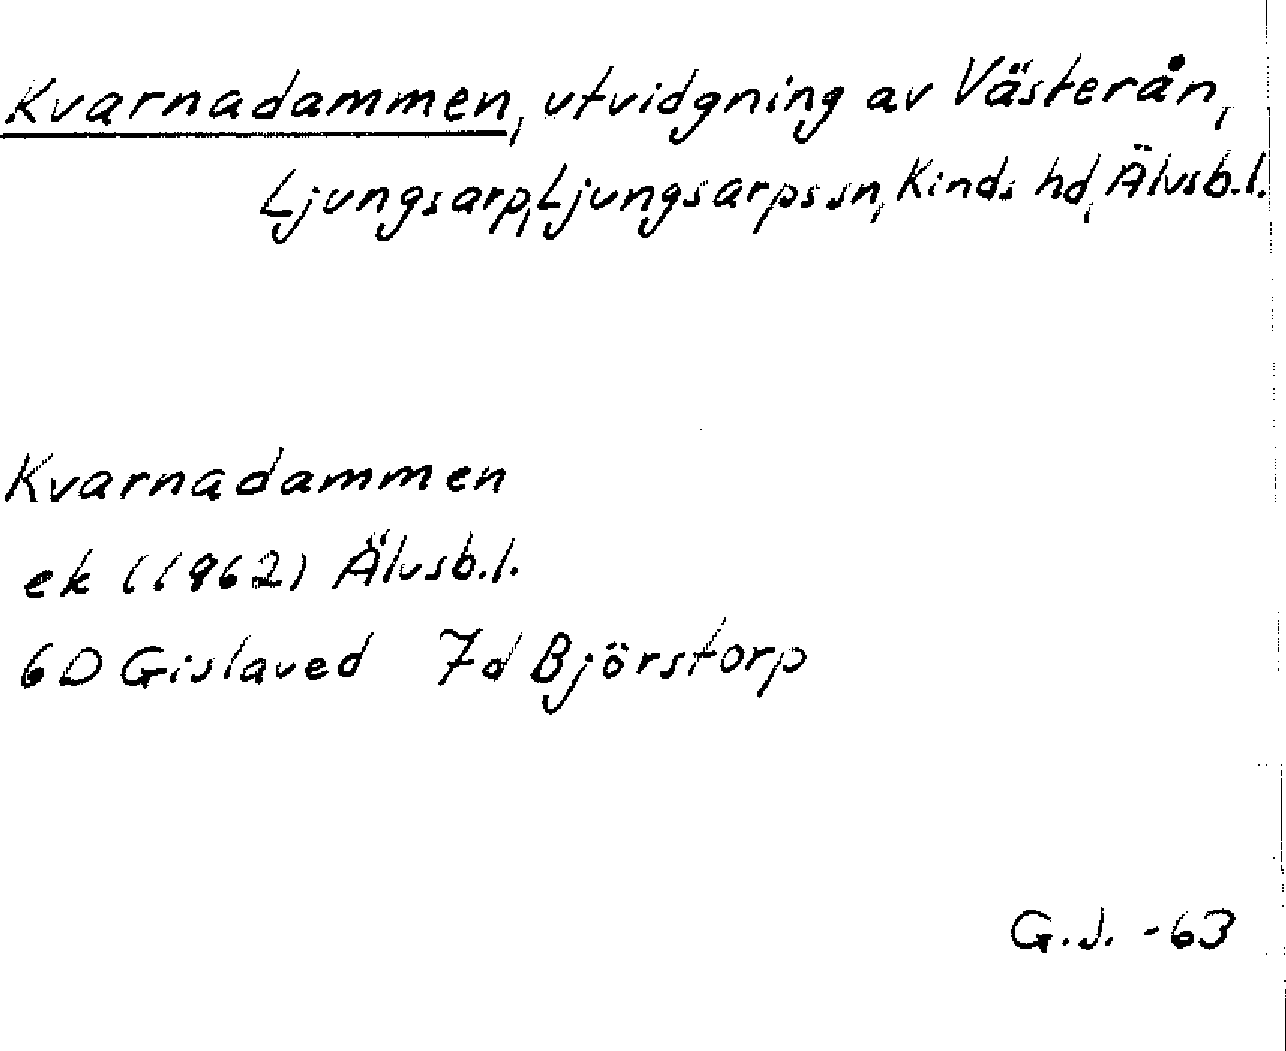 Kvarnadammen, utvidgning av Västerån,
Ljungsarp, Ljungsarps sn, Kinds hd, Älvsb.l.
Kvarnadammen
ek (1962) Älvsb.l.
6D Gislaved 7d Björstorp
G.J. -63